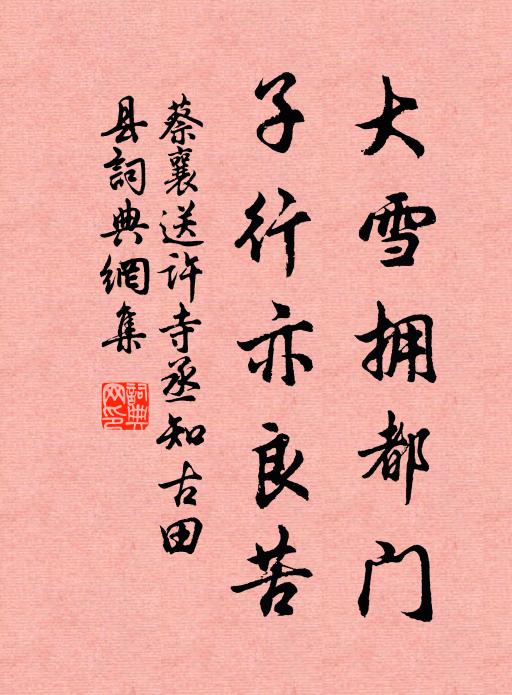 大雪拥都门
子行亦良苦
蔡襄送許寺丞知古田
县詞典網集
詞典
网印